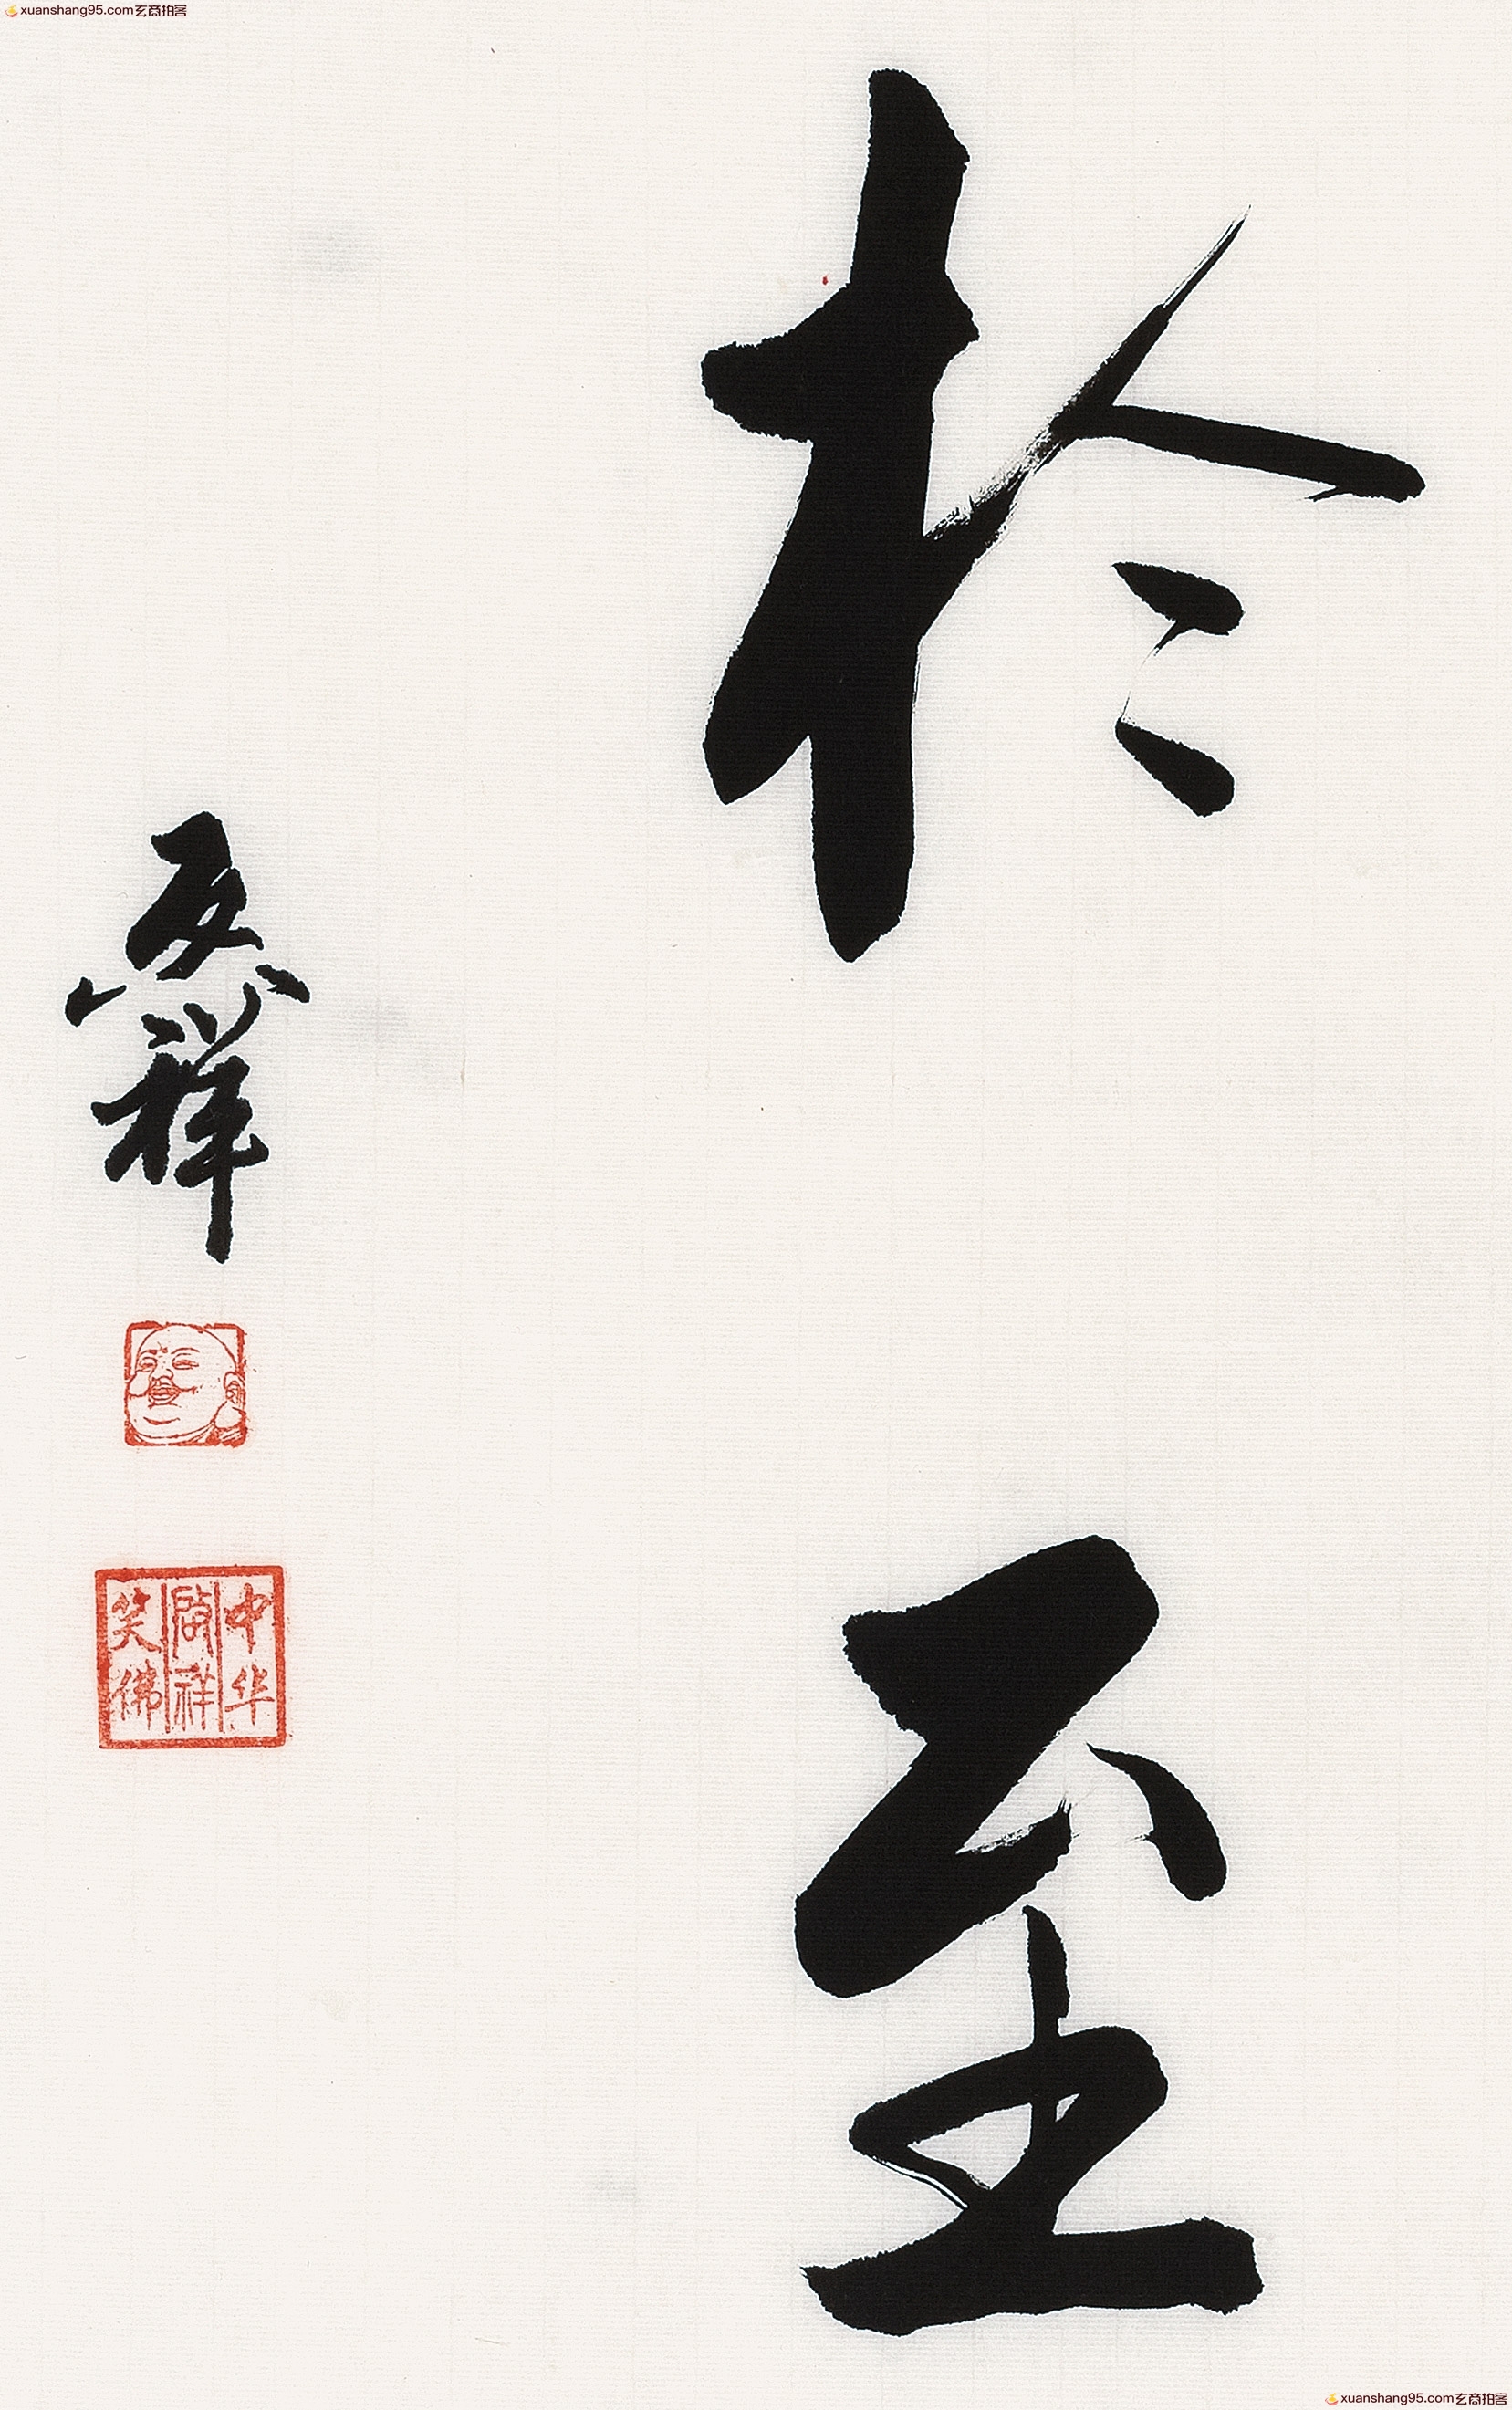 xuanshang95.com玄商拍客
於至
啟祥
中华
啟祥
笑佛
xuanshang95.com玄商拍客